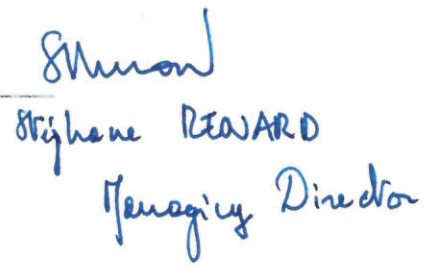 Stéphane RENARD
Managing Director